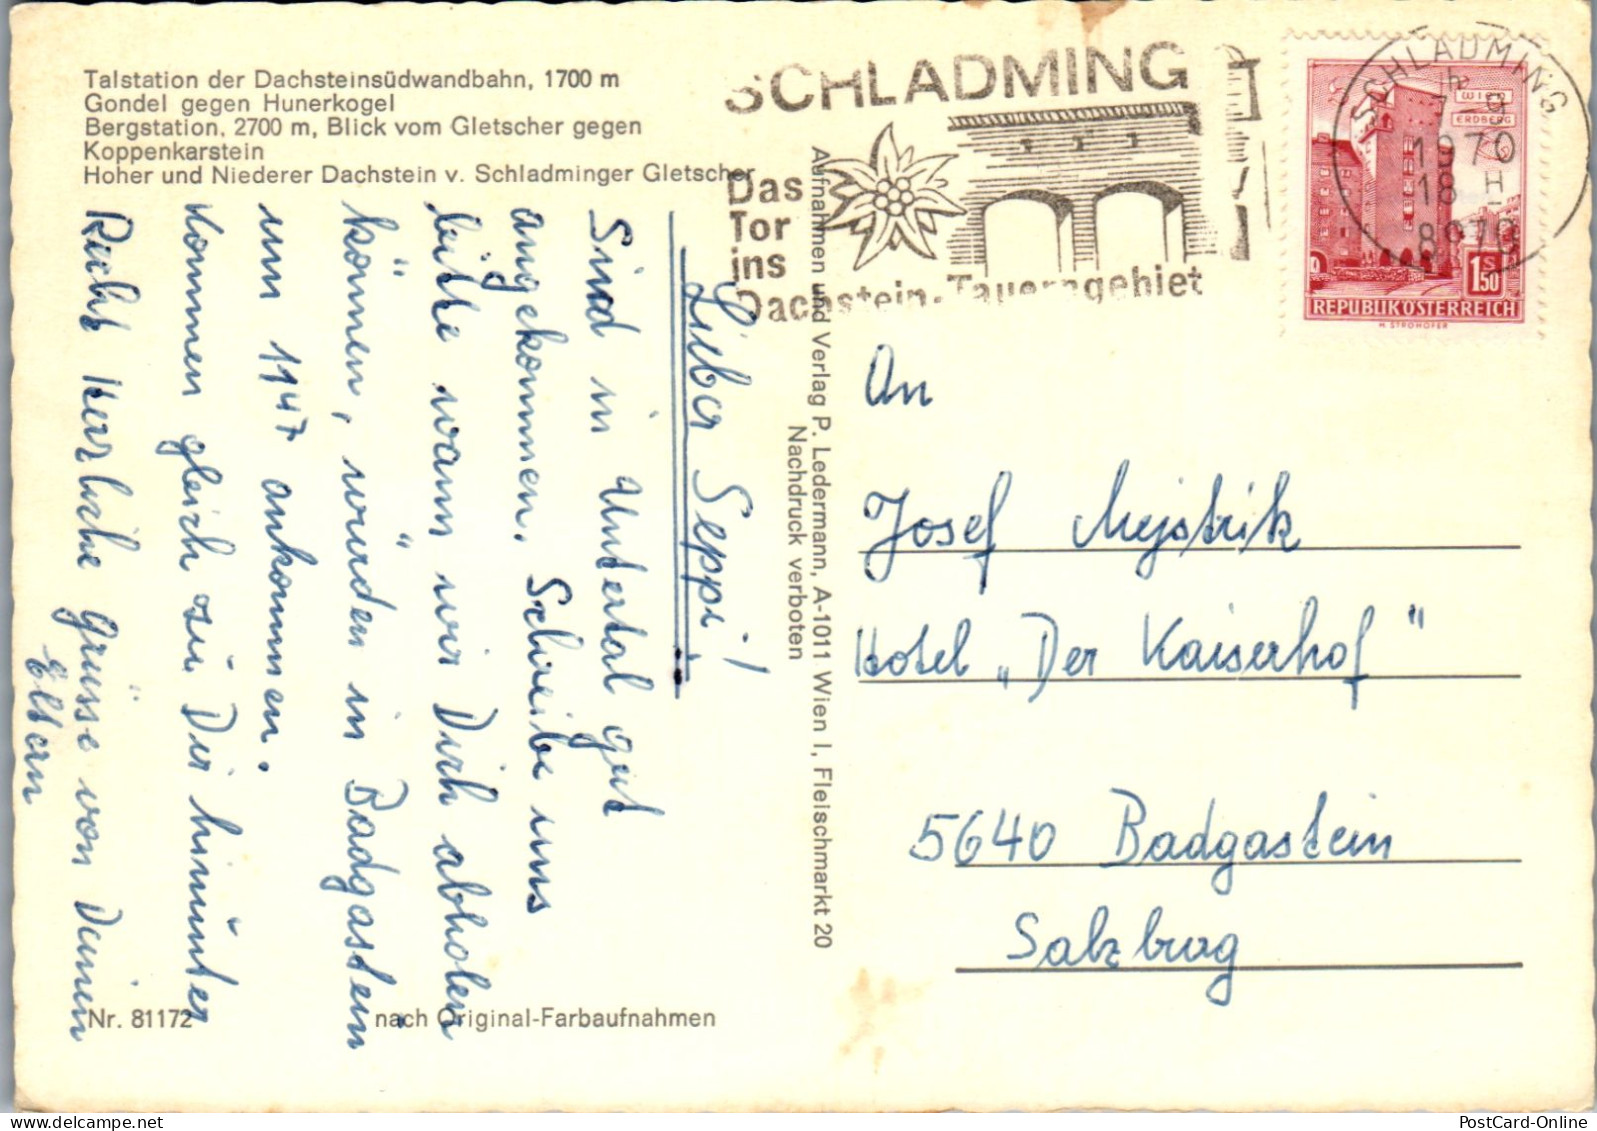 Talstation der Dachsteinsüdwandbahn, 1700 m
Gondel gegen Hunerkogel
Bergstation, 2700 m, Blick vom Gletscher gegen
Koppenkarstein
Hoher und Niederer Dachstein v. Schladminger Gletscher
SCHLADMING
Das
Tor
ins
Dachstein-Tauerngebiet
SCHLADMING
1970
18 H
8970
WIEN
ERDBERG
1 S 50
REPUBLIK ÖSTERREICH
H. STROHOFER
Lieber Seppi!
Sind in Untertal gut
angekommen. Schreibe uns
bitte wann wir Dich abholen
können, würden in Badgastein
um 11 47 ankommen.
Kommen gleich zu Dir hinunter
Recht Herzliche Grüsse von Deinen
Eltern
Aufnahmen und Verlag P. Ledermann, A-1011 Wien I, Fleischmarkt 20
Nachdruck verboten
An
Josef Mejstrik
Hotel „Der Kaiserhof"
5640 Badgastein
Salzburg
Nr. 81172
nach Original-Farbaufnahmen
PostCard-Online